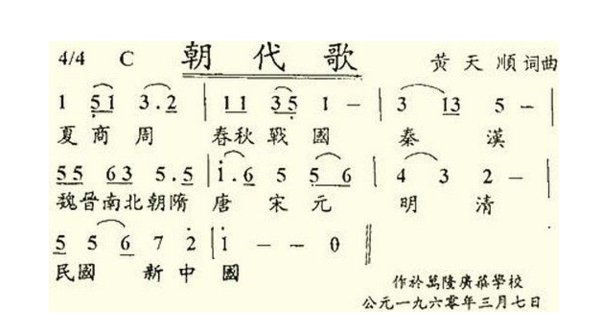 4/4 C 朝代歌 黄天順 詞曲
1 51 3.2 | 11 35 1 — | 3 13 5 — |
夏商周 春秋戰國 秦漢
55 63 5.5 | 1.6 5 5 6 | 4 3 2 — |
魏晉南北朝隋 唐宋元 明清
5 5 6 7 2 | 1 — — 0 ‖
民國 新中國
作於萬隆廣華學校
公元一九六〇年三月七日